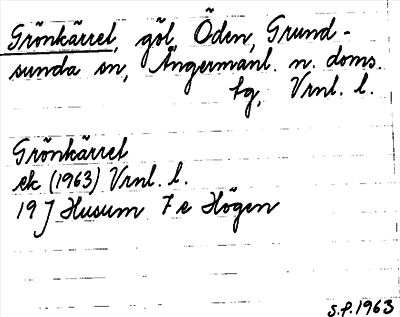 Grönkärret, göl, Öden, Grund-
sunda sn, Ångermanl. n. doms.
tg, Vrnl. l.
Grönkärret
ek (1963) Vrnl. l.
19 J Husum 7 e Högen
S.F. 1963